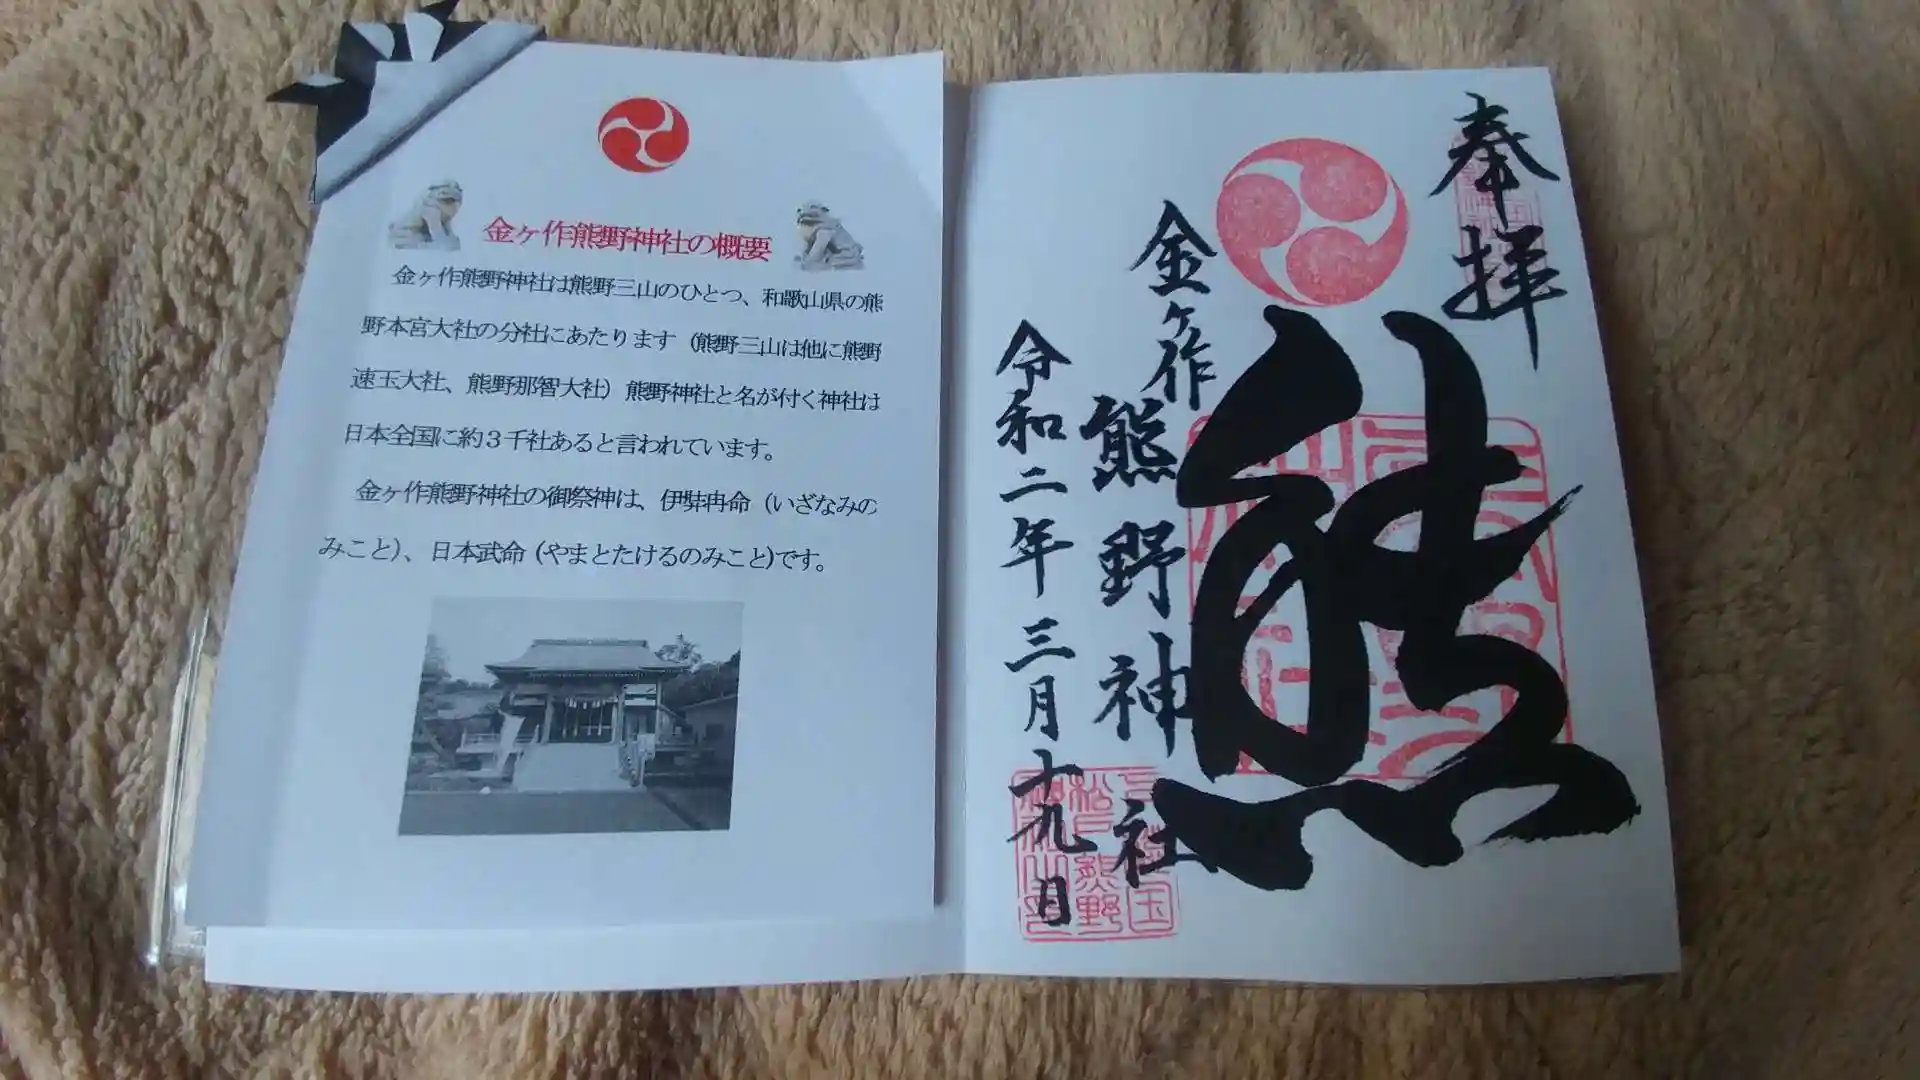 金ヶ作熊野神社の概要
金ヶ作熊野神社は熊野三山のひとつ、和歌山県の熊
野本宮大社の分社にあたります（熊野三山は他に熊野
速玉大社、熊野那智大社）熊野神社と名が付く神社は
日本全国に約３千社あると言われています。
金ヶ作熊野神社の御祭神は、伊弉冉命（いざなみの
みこと）、日本武命（やまとたけるのみこと)です。
奉拝
熊
金ヶ作熊野神社
令和二年三月十九日